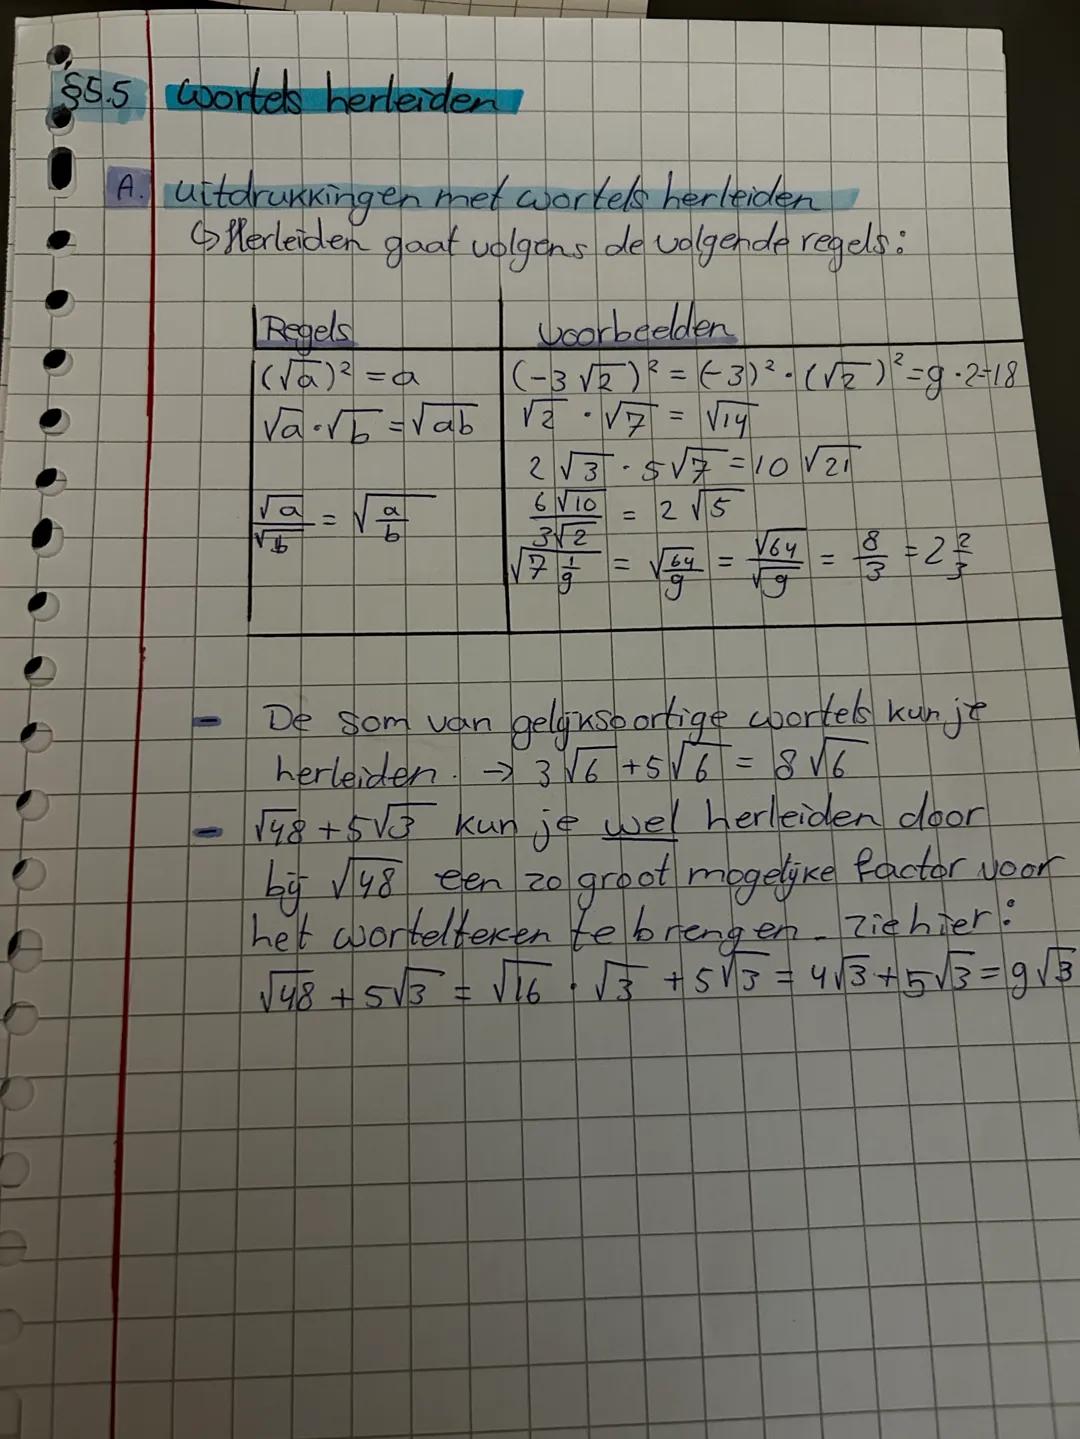 §5.5 wortels herleiden
A. uitdrukkingen met wortels herleiden
↳ Herleiden gaat volgens de volgende regels:
Regels voorbeelden
(√a)² = a (-3√2)² = (-3)² · (√2)² = 9 · 2 = 18
√a · √b = √ab √2 · √7 = √14
2√3 · 5√7 = 10√21
√a/√b = √(a/b) 6√10/3√2 = 2√5
√(7 1/9) = √(64/9) = √64/√9 = 8/3 = 2 2/3
- De som van gelijksoortige wortels kun je
herleiden. → 3√6 + 5√6 = 8√6
- √48 + 5√3 kun je wel herleiden door
bij √48 een zo groot mogelijke factor voor
het wortelteken te brengen. Zie hier:
√48 + 5√3 = √16 · √3 + 5√3 = 4√3 + 5√3 = 9√3